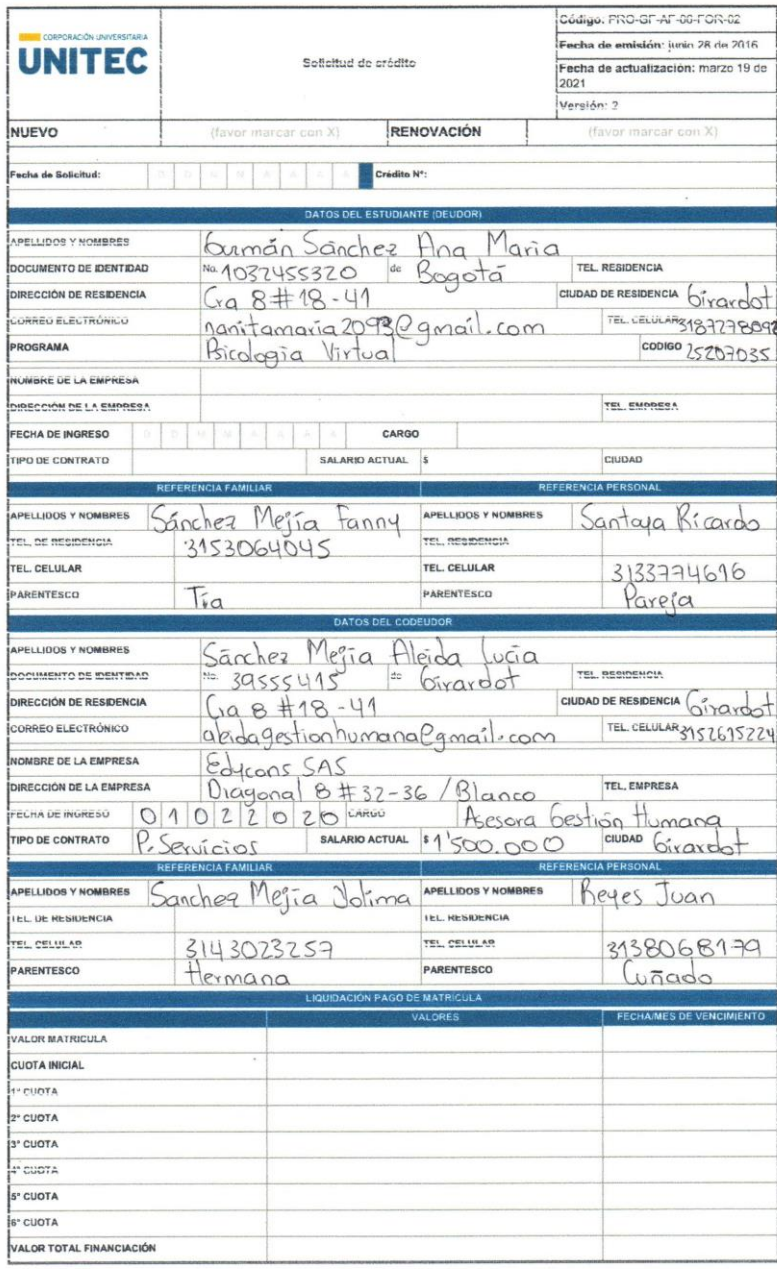 CORPORACIÓN UNIVERSITARIA
UNITEC
Solicitud de crédito
Código: PRO-GF-AF-00-FOR-02
Fecha de emisión: junio 28 de 2016
Fecha de actualización: marzo 19 de 2021
Versión: 2
NUEVO (favor marcar con X) RENOVACIÓN (favor marcar con X)
Fecha de Solicitud: D D M M A A A A Crédito N°:
DATOS DEL ESTUDIANTE (DEUDOR)
APELLIDOS Y NOMBRES Guzmán Sánchez Ana Maria
DOCUMENTO DE IDENTIDAD No. 1032455320 de Bogotá TEL. RESIDENCIA
DIRECCIÓN DE RESIDENCIA Cra 8 # 18 - 41 CIUDAD DE RESIDENCIA Girardot
CORREO ELECTRÓNICO nanitamaria2093@gmail.com TEL. CELULAR 3187278092
PROGRAMA Psicologia Virtual CODIGO 25207035
NOMBRE DE LA EMPRESA
DIRECCIÓN DE LA EMPRESA TEL. EMPRESA
FECHA DE INGRESO D D M M A A A A CARGO
TIPO DE CONTRATO SALARIO ACTUAL $ CIUDAD
REFERENCIA FAMILIAR REFERENCIA PERSONAL
APELLIDOS Y NOMBRES Sánchez Mejía Fanny APELLIDOS Y NOMBRES Santoya Ricardo
TEL. DE RESIDENCIA 3153064045 TEL. RESIDENCIA
TEL. CELULAR TEL. CELULAR 3133774616
PARENTESCO Tía PARENTESCO Pareja
DATOS DEL CODEUDOR
APELLIDOS Y NOMBRES Sánchez Mejía Aleida Lucía
DOCUMENTO DE IDENTIDAD No. 39555415 de Girardot TEL. RESIDENCIA
DIRECCIÓN DE RESIDENCIA Cra 8 # 18 - 41 CIUDAD DE RESIDENCIA Girardot
CORREO ELECTRÓNICO aleidagestionhumana@gmail.com TEL. CELULAR 3152615224
NOMBRE DE LA EMPRESA Edycons SAS
DIRECCIÓN DE LA EMPRESA Diagonal 8 # 32-36 / Blanco TEL. EMPRESA
FECHA DE INGRESO 0 1 0 2 2 0 2 0 CARGO Asesora Gestión Humana
TIPO DE CONTRATO P. Servicios SALARIO ACTUAL $ 1'500.000 CIUDAD Girardot
REFERENCIA FAMILIAR REFERENCIA PERSONAL
APELLIDOS Y NOMBRES Sanchez Mejía Yolima APELLIDOS Y NOMBRES Reyes Juan
TEL. DE RESIDENCIA TEL. RESIDENCIA
TEL. CELULAR 3143023257 TEL. CELULAR 3138068179
PARENTESCO Hermana PARENTESCO Cuñado
LIQUIDACIÓN PAGO DE MATRICULA
VALORES FECHA/MES DE VENCIMIENTO
VALOR MATRICULA
CUOTA INICIAL
1ª CUOTA
2ª CUOTA
3ª CUOTA
4ª CUOTA
5ª CUOTA
6ª CUOTA
VALOR TOTAL FINANCIACIÓN